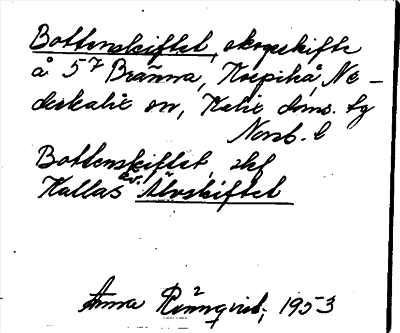 Bottenskiftet, skogskifte
å 5⁷ Bränna, Korpikå, Ne-
derkalix sn, Kalix doms. tg
Norrb. l
Bottenskiftet, skf
Kallas äv. Älvskiftet
Anna Rönnqvist, 1953